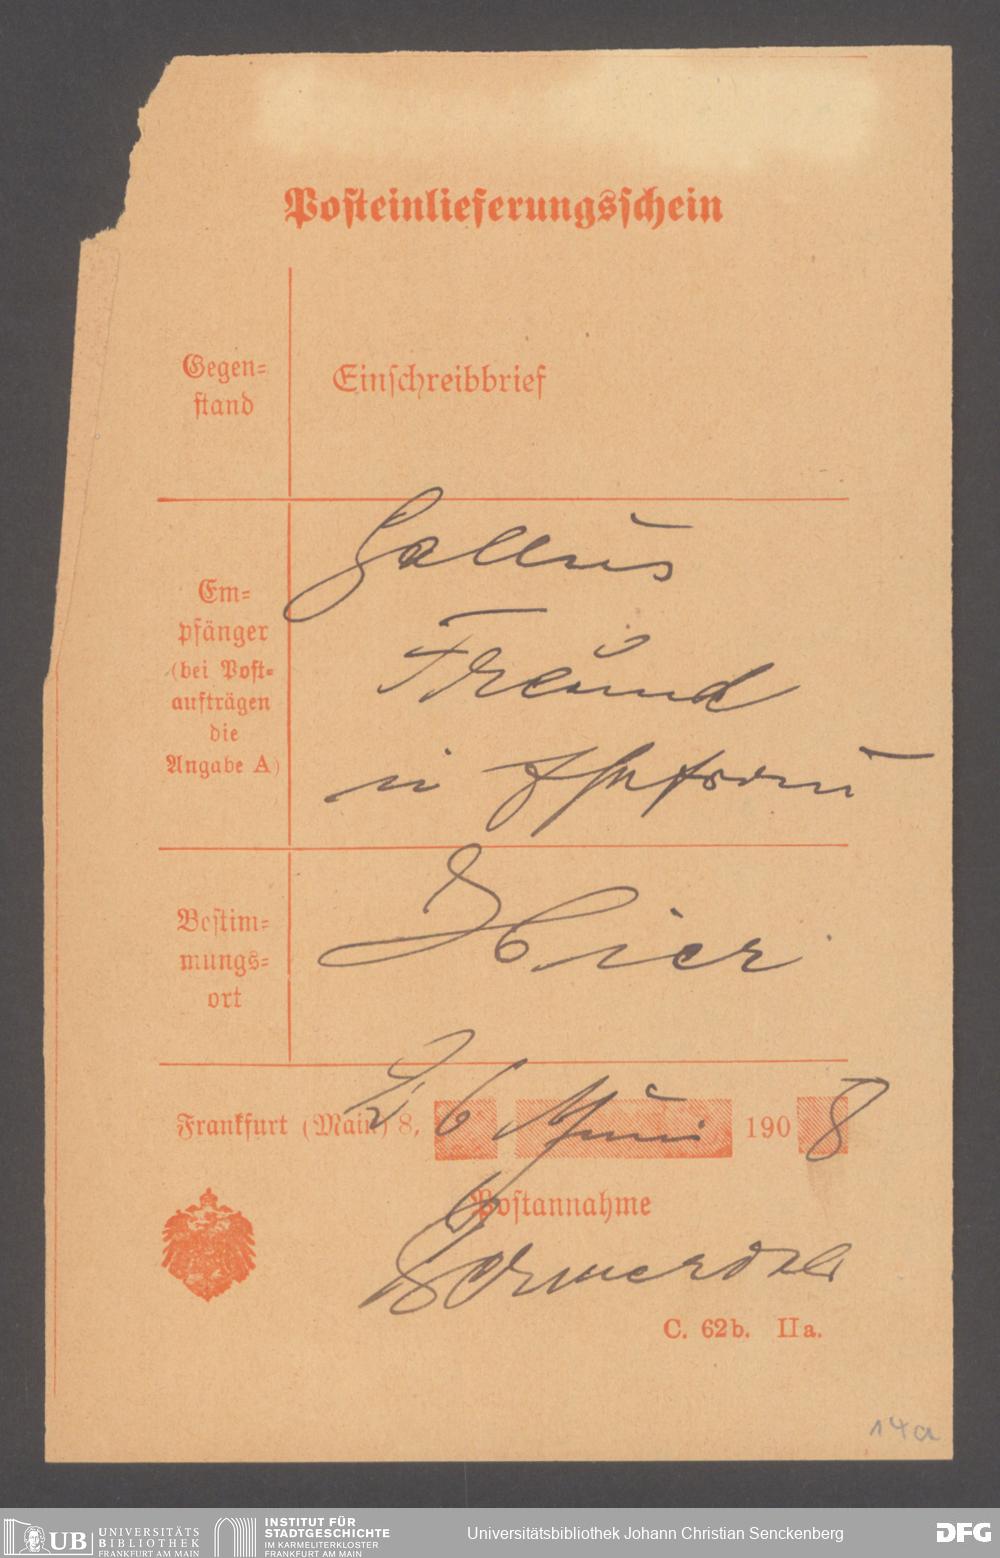 Posteinlieferungsschein
Gegen=
stand
Einschreibbrief
Em=
pfänger
(bei Post=
aufträgen
die
Angabe A)
Gallus
Freund
in
Bestim=
mungs=
ort
Hier
Frankfurt (Main) 8, 26 Juni 1908
Postannahme
C. 62b. IIa.
14a
UB UNIVERSITÄTS
BIBLIOTHEK
FRANKFURT AM MAIN
INSTITUT FÜR
STADTGESCHICHTE
IM KARMELITERKLOSTER
FRANKFURT AM MAIN
Universitätsbibliothek Johann Christian Senckenberg
DFG